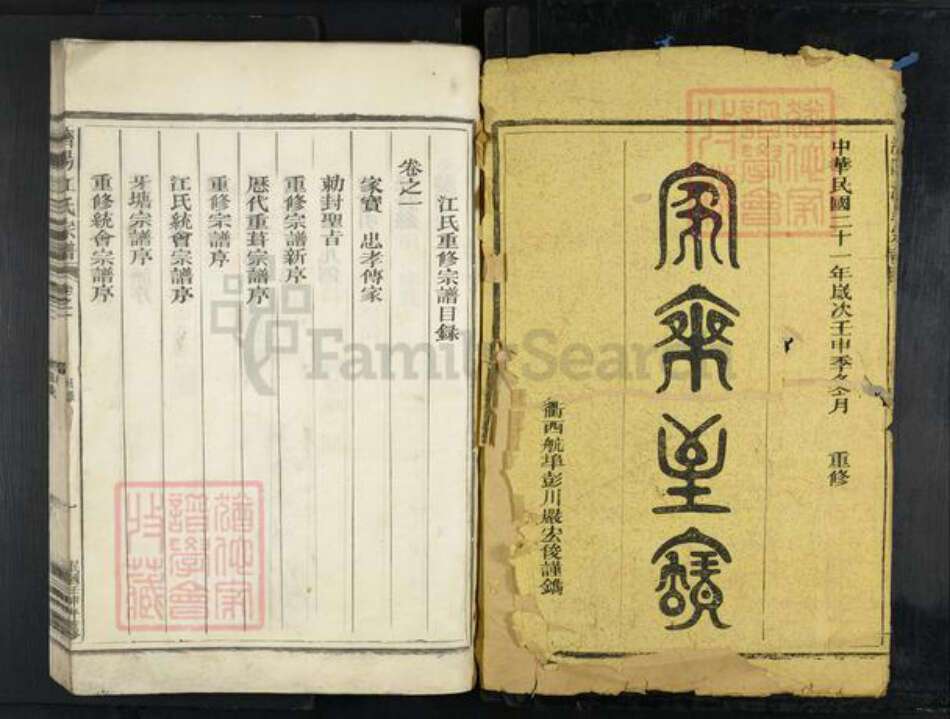 中華民國二十一年歲次壬申季冬月 重修
家乘至寶
衢西航埠彭川嚴宏俊謹鐫
江氏重修宗譜目錄
卷之一
家寶 忠孝傳家
勅封聖旨
重修宗譜新序
歷代重葺宗譜序
重修宗譜序
江氏統會宗譜序
牙塘宗譜序
重修統會宗譜序
濟陽江氏宗譜 卷之一
FamilySearch